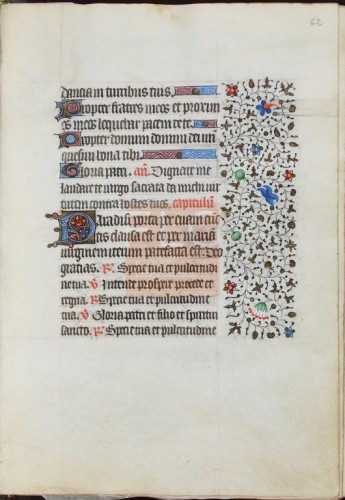 62
dantiam in turribus tuis.
Propter fratres meos et proxim
os meos loquebar pacem de te.
Propter domum domini dei nri
quesiui bona tibi.
Gloria patri. an. Dignare me
laudare te uirgo sacrata da michi uir
tutem contra hostes tuos. capitulum
Paradisi porta per euam cunc
tis clausa est et per mariam
uirginem iterum patefacta est. Deo
gratias. R. Specie tua et pulcritudi
ne tua. V. Intende prospere procede et
regna. R. Specie tua et pulcritudine
tua. V. Gloria patri et filio et spiritui
sancto. R. Specie tua et pulcritudine